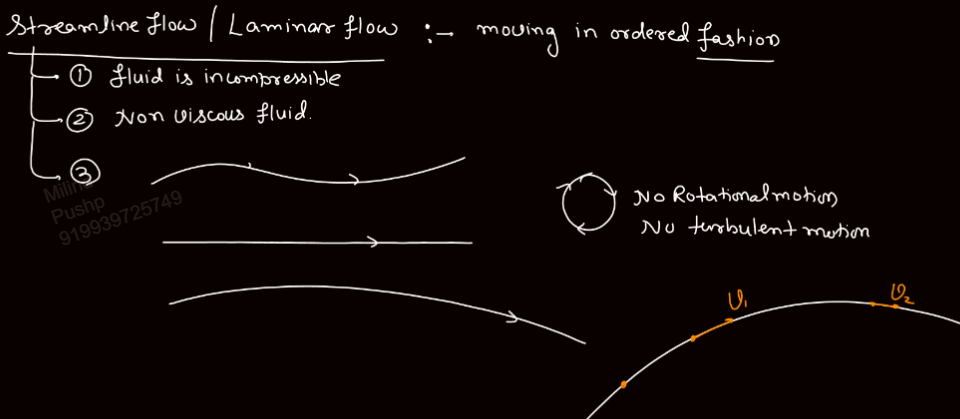 Streamline flow / Laminar flow :- moving in ordered fashion
① fluid is incompressible
② Non viscous fluid.
③
Pushp
919939725749
No Rotational motion
No turbulent motion
υ₁
υ₂